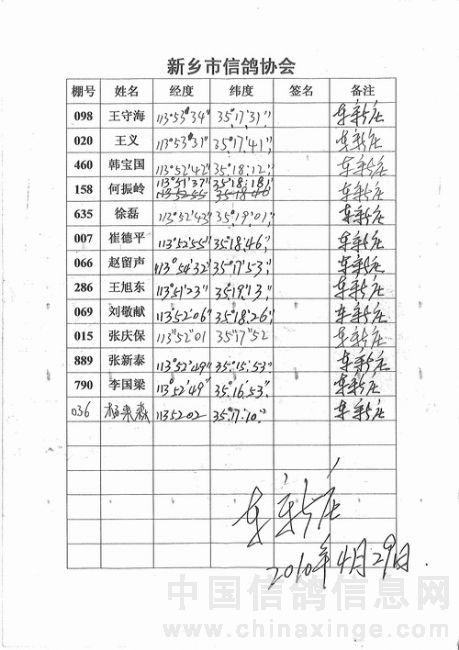 新乡市信鸽协会
棚号 姓名 经度 纬度 签名 备注
098 王守海 113°53'34" 35°17'31" 车新庄
020 王义 113°53'31" 35°17'41" 车新庄
460 韩宝国 113°52'42" 35°18'12" 车新庄
158 何振岭 113°51'37" 35°18'18" 车新庄
635 徐磊 113°52'43" 35°19'01" 车新庄
007 崔德平 113°52'55" 35°18'46" 车新庄
066 赵留声 113°54'32" 35°17'53" 车新庄
286 王旭东 113°51'23" 35°19'13" 车新庄
069 刘敬献 113°52'06" 35°18'26" 车新庄
015 张庆保 113°52'01 35°17'52 车新庄
889 张新泰 113°52'49" 35°15'53" 车新庄
790 李国梁 113°52'49" 35°16'53" 车新庄
036 113 52 02 35°17'10" 车新庄
车新庄
2010年4月29日
中国信鸽信息网
www.chinaxinge.com